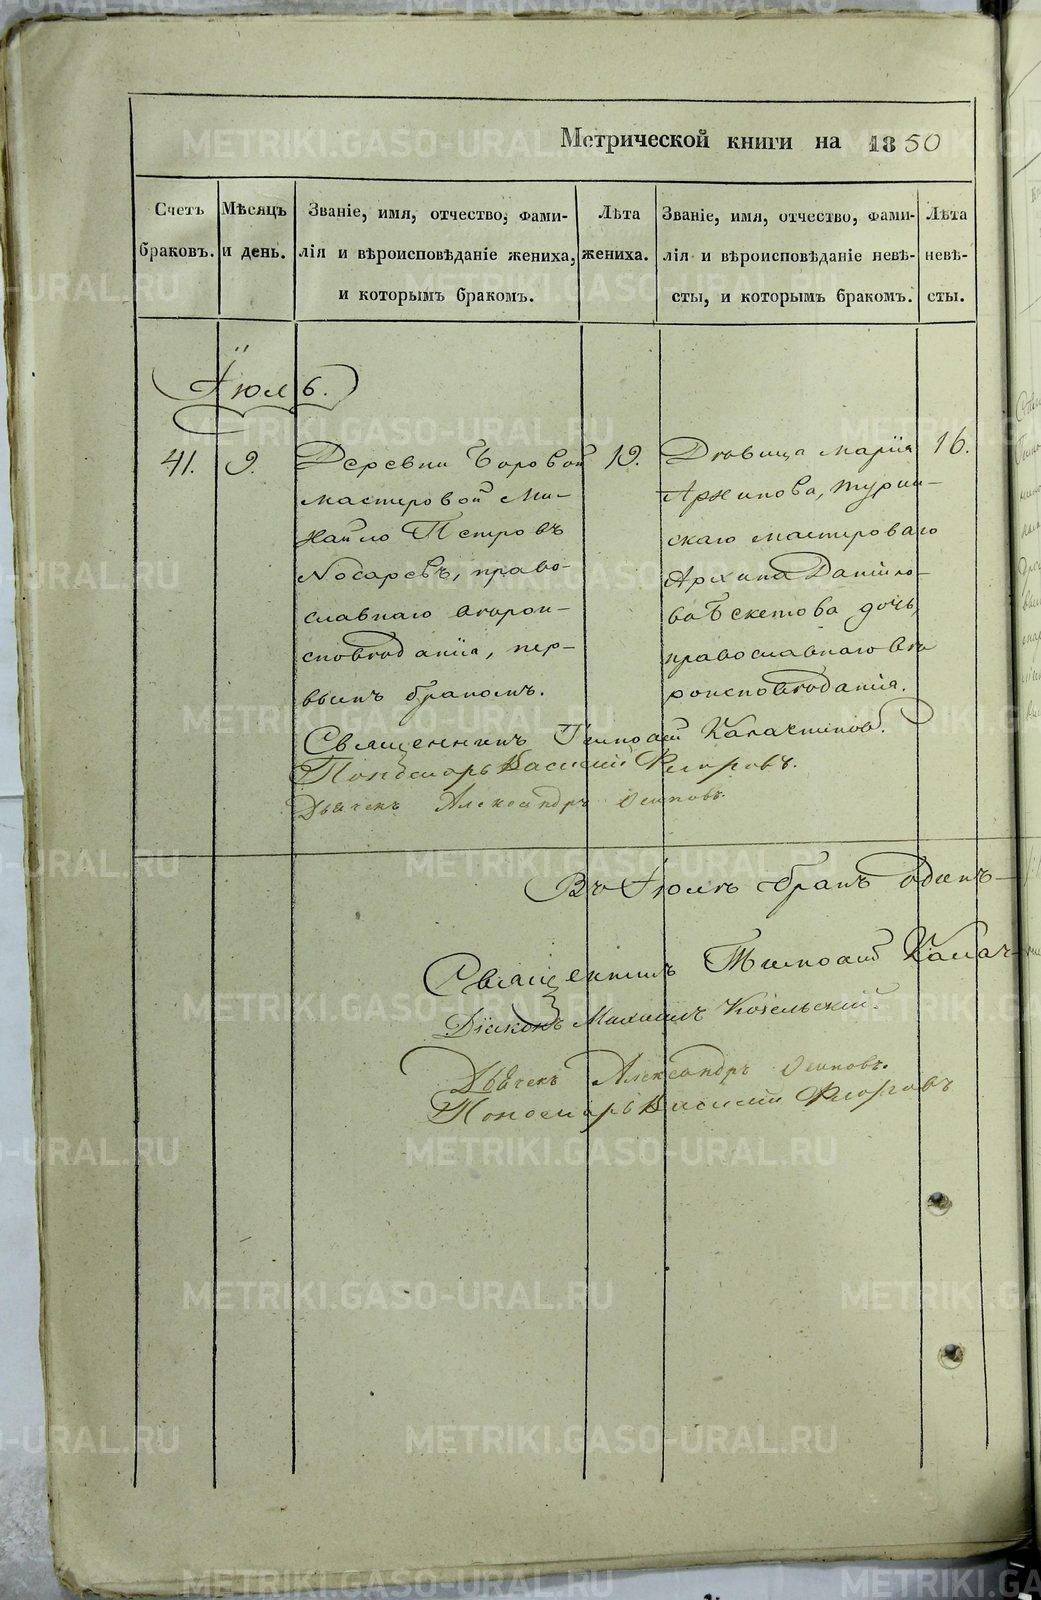 Метрической книги на 1850
Счетъ браковъ.
Мѣсяцъ и день.
Званіе, имя, отчество, фами-
лія и вѣроисповѣданіе жениха,
и которымъ бракомъ.
Лѣта жениха.
Званіе, имя, отчество, фами-
лія и вѣроисповѣданіе невѣ-
сты, и которымъ бракомъ.
Лѣта невѣ-
сты.
Іюль.
41.
9.
Деревни Боровой
мастеровой Ми-
хайло Петровъ
Носаревъ, право-
славнаго вѣрои-
сповѣданія, пер-
вымъ бракомъ.
19.
Дѣвица Марія
Архипова, Турин-
скаго мастероваго
Архипа Данило-
ва Бекетова дочь,
православнаго вѣ
роисповѣданія.
16.
Священникъ Тимофей Калачниковъ.
Пономарь Василий Флоровъ.
Дьячекъ Александръ Осиповъ.
Въ Іюлѣ бракъ одинъ
Священникъ Тимофей Калач
Діаконъ Михаилъ Козельский.
Дьячекъ Александръ Осиповъ.
Пономарь Василий Флоровъ
METRIKI.GASO-URAL.RU